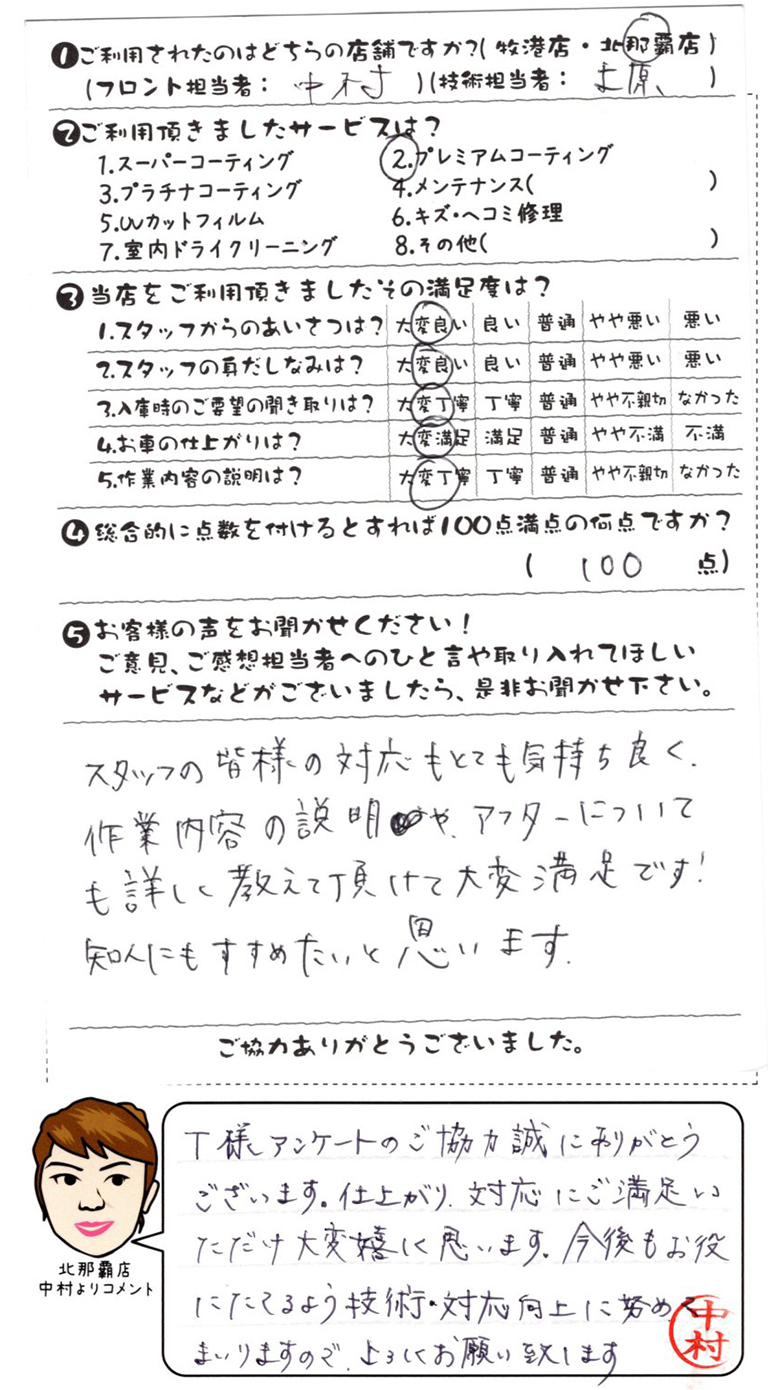 ❶ご利用されたのはどちらの店舗ですか?(牧港店・北那覇店)
(フロント担当者: 中村 )(技術担当者: 上原 )
❷ご利用頂きましたサービスは?
1.スーパーコーティング 2.プレミアムコーティング
3.プラチナコーティング 4.メンテナンス( )
5.UVカットフィルム 6.キズ・ヘコミ修理
7.室内ドライクリーニング 8.その他( )
❸当店をご利用頂きましたその満足度は?
1.スタッフからのあいさつは? 大変良い 良い 普通 やや悪い 悪い
2.スタッフの身だしなみは? 大変良い 良い 普通 やや悪い 悪い
3.入庫時のご要望の聞き取りは? 大変丁寧 丁寧 普通 やや不親切 なかった
4.お車の仕上がりは? 大変満足 満足 普通 やや不満 不満
5.作業内容の説明は? 大変丁寧 丁寧 普通 やや不親切 なかった
❹総合的に点数を付けるとすれば100点満点の何点ですか?
( 100 点)
❺お客様の声をお聞かせください!
ご意見、ご感想担当者へのひと言や取り入れてほしい
サービスなどがございましたら、是非お聞かせ下さい。
スタッフの皆様の対応もとても気持ち良く、
作業内容の説明や、アフターについて
も詳しく教えて頂けて大変満足です!
知人にもすすめたいと思います。
ご協力ありがとうございました。
T様、アンケートのご協力誠にありがとう
ございます。仕上がり、対応にご満足い
ただけ大変嬉しく思います。今後もお役
にたてるよう技術・対応向上に努めて
まいりますので、よろしくお願い致します
北那覇店
中村よりコメント
中村